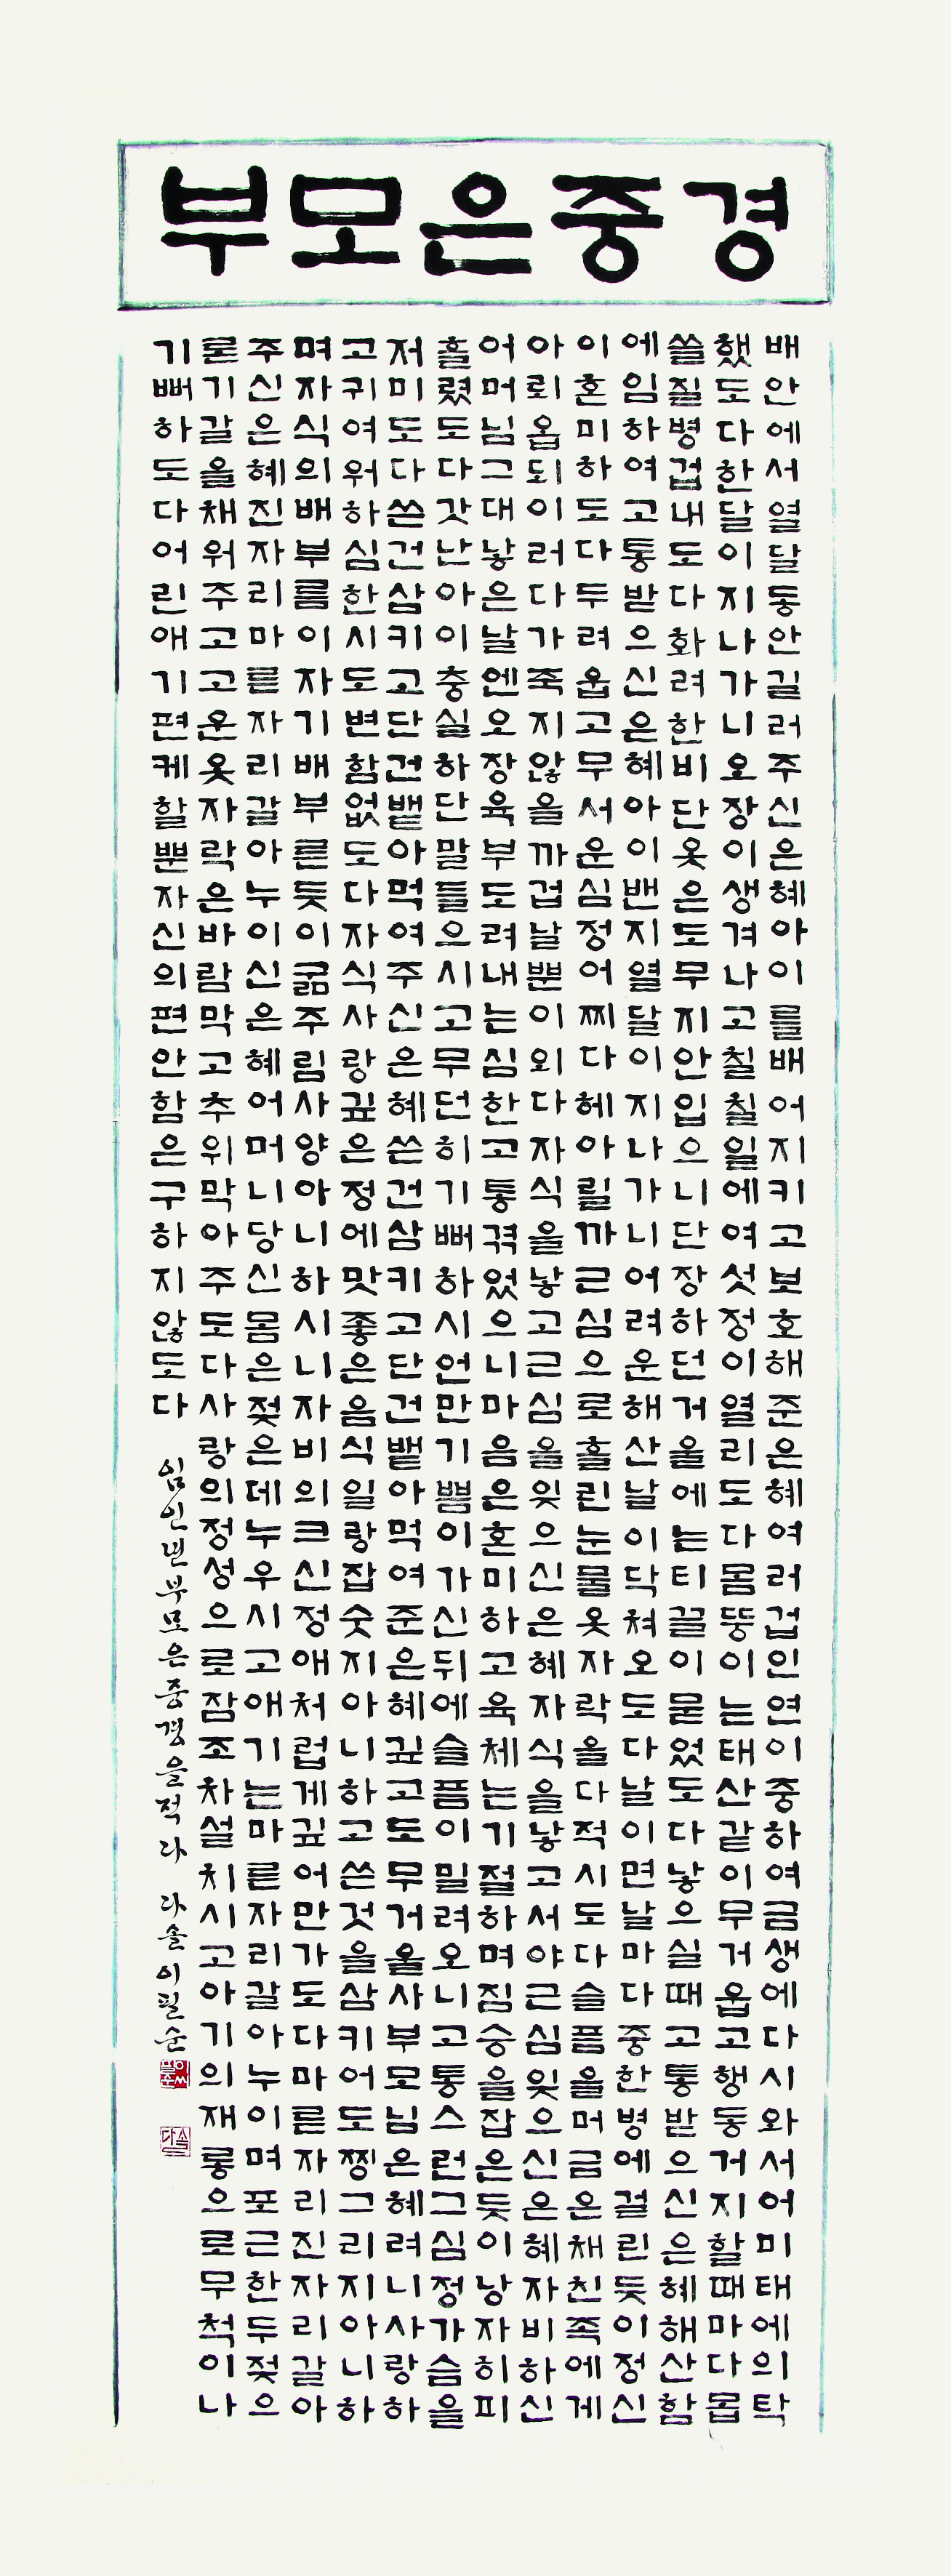 부모은중경
배안에서열달동안길러주신은혜아이를배어지키고보호해준은혜여러겁인연이중하여금생에다시와서어미태에의탁
했도다한달이지나가니오장이생겨나고칠칠일에여섯정이열리도다몸뚱이는태산같이무거웁고행동거지할때마다몹
쓸질병겁내도다화려한비단옷은도무지안입으니단장하던거울에는티끌이묻었도다낳으실때고통받으신은혜해산함
에임하여고통받으신은혜아이밴지열달이지나가니어려운해산날이닥쳐오도다날이면날마다중한병에걸린듯이정신
이혼미하도다두려웁고무서운심정어찌다헤아릴까근심으로흘린눈물옷자락을다적시도다슬픔을머금은채친족에게
아뢰옵되이러다가죽지않을까겁날뿐이외다자식을낳고근심을잊으신은혜자식을낳고서야근심잊으신은혜자비하신
어머님그대낳은날엔오장육부도려내는심한고통겪었으니마음은혼미하고육체는기절하며짐승을잡은듯이낭자히피
흘렸도다갓난아이충실하단말들으시고무던히기뻐하시언만기쁨이가신뒤에슬픔이밀려오니고통스런그심정가슴을
저미도다쓴건삼키고단건뱉아먹여주신은혜쓴건삼키고단건뱉아먹여준은혜깊고도무거울사부모님은혜려니사랑하
고귀여워하심한시도변함없도다자식사랑깊은정에맛좋은음식일랑잡숫지아니하고쓴것을삼키어도찡그리지아니하
며자식의배부름이자기배부른듯이굶주림사양아니하시니자비의크신정애처럽게깊어만가도다마른자리진자리갈아
주신은혜진자리마른자리갈아누이신은혜어머니당신몸은젖은데누우시고애기는마른자리갈아누이며포근한두젖으
론기갈을채워주고고운옷자락은바람막고추위막아주도다사랑의정성으로잠조차설치시고아기의재롱으로무척이나
기뻐하도다어린애기편케할뿐자신의편안함은구하지않도다
임인년부모은중경을적다 다솔이필순
이필순
다솔